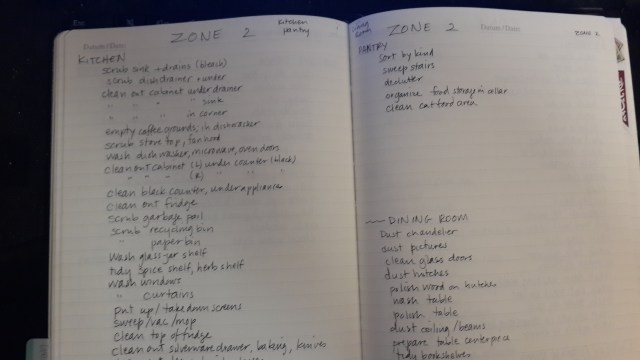 ZONE 2
Kitchen
pantry
KITCHEN
scrub sink + drains (bleach)
scrub dish drainer + under
clean out cabinet under drainer
" " " sink
" " " in corner
empty coffee grounds, in dishwasher
scrub stove top, tan hood
wash dishwasher, microwave, oven doors
clean out cabinet (L) under counter (black)
" " (R) " "
clean black counter, under appliances
clean out fridge
scrub garbage pail
scrub recycling bin
" paper bin
wash glass-jar shelf
tidy spice shelf, herb shelf
wash windows
" curtains
put up/take down screens
sweep/vac/mop
clean top of fridge
clean out silverware drawer, baking, knives
ZONE 2
ZONE 2
PANTRY
sort by kind
sweep stairs
declutter
organize food storage in cellar
clean cat food area
DINING ROOM
Dust chandelier
dust pictures
clean glass doors
dust hutches
polish wood on hutches
wash table
polish table
dust ceiling/beams
prepare table centerpiece
tidy bookshelves